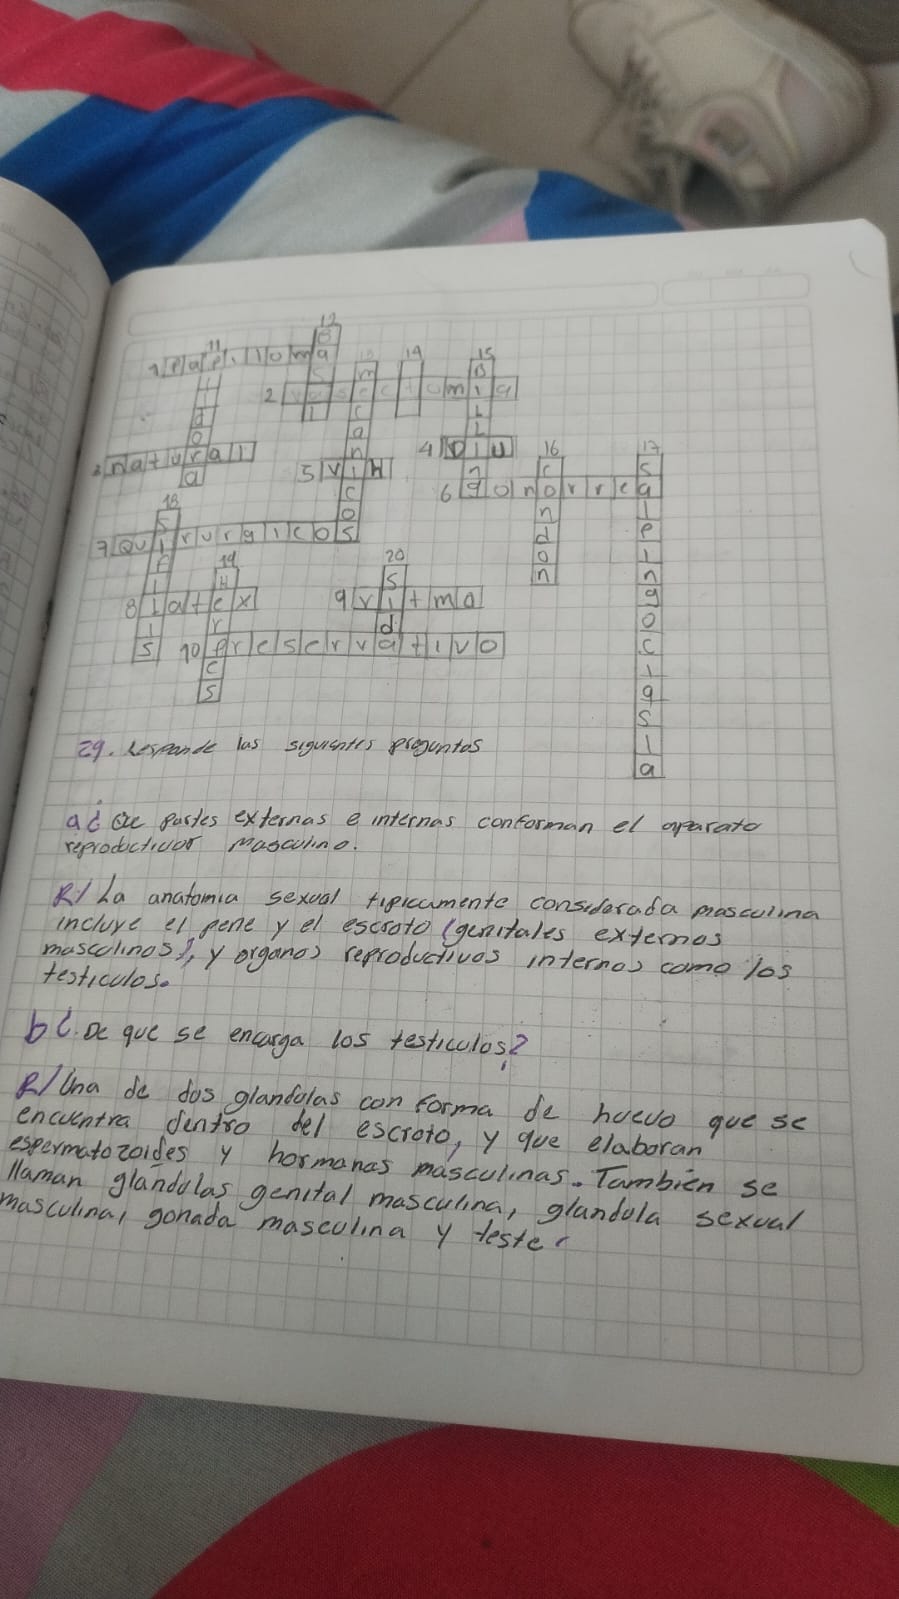 12
11
1 Papiloma
13
14
15
2 vasectomia
3 natural
4 DIU
5 VIH
16
17
6 gonorrea
18
7 Quirurgicos
19
20
8 latex
9 ritmo
10 preservativo
Pildora
mecanicos
Billings
condon
salpingoclasia
sifilis
Herpes
Sida
29. Responde las siguientes preguntas
a¿ Que partes externas e internas conforman el aparato
reproductivor masculino.
R/ La anatomia sexual tipicamente considerada masculina
incluye el pene y el escroto (genitales externos
masculinos), y organos reproductivos internos como los
testiculos.
b¿. De que se encarga los testiculos?
R/ Una de dos glandulas con forma de huevo que se
encuentra dentro del escroto, y que elaboran
espermatozoides y hormonas masculinas. También se
llaman glándulas genital masculina, glandula sexual
masculina, gonada masculina y teste.